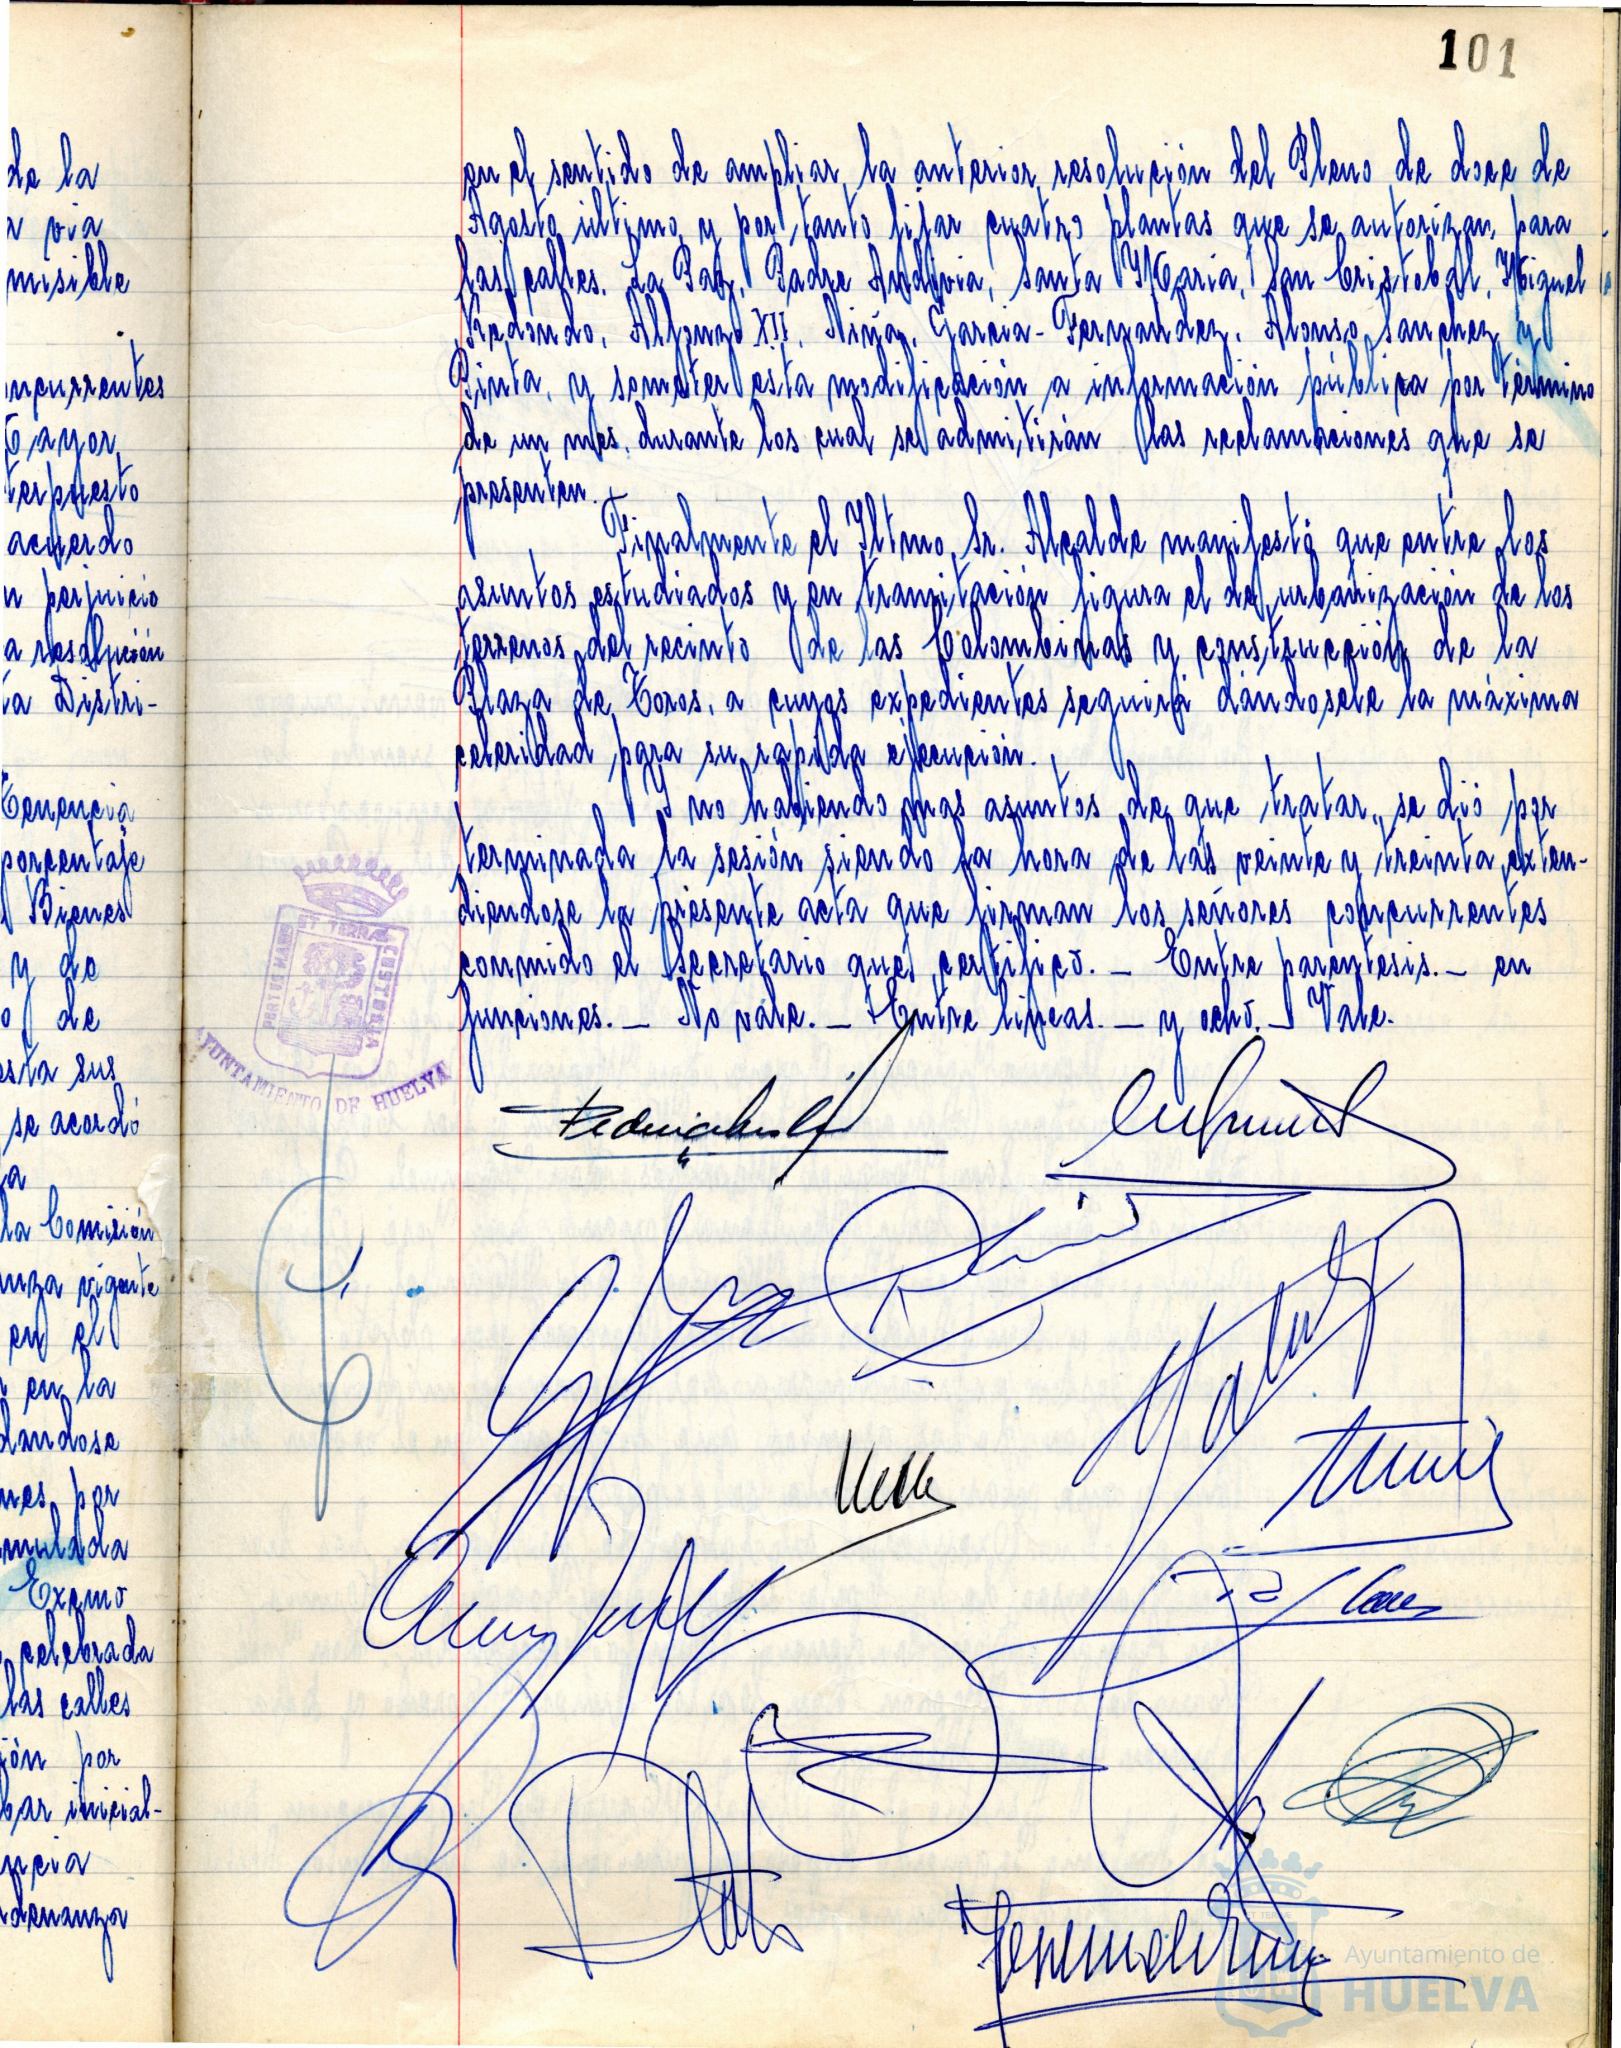 101
de la
via
misible
ncurrentes
ayor,
terpuesto
acuerdo
n perjuicio
a resolución
ta Distri-
Tenencia
porcentaje
Bienes
y de
o de
esta sus
se acordó
a
la Comisión
nza vigente
en el
en la
dandose
nes por
mulada
Excmo
celebrada
las calles
ión por
bar inicial-
ncia
denanza
en el sentido de ampliar la anterior resolución del Pleno de doce de
Agosto último, y por tanto fijar cuatro plantas que se autorizan, para
las calles. La Paz, Padre Andivia, Santa Maria, San Cristobal, Miguel
Redondo, Alfonzo XII, Niña, Garcia-Fernandez, Alonso Sanchez y
Pinta, y someter esta modificación a información pública por término
de un mes, durante los cual se admitirán las reclamaciones que se
presenten.
Finalmente el Iltmo. Sr. Alcalde manifestó que entre los
asuntos estudiados y en tramitación figura el de urbanización de los
terrenos del recinto de las Colombinas y construcción de la
Plaza de Toros, a cuyos expedientes seguirá dándosele la máxima
celeridad para su rápida ejecución.
Y no habiendo mas asuntos de que tratar, se dió por
terminada la sesión siendo la hora de las veinte y treinta, exten-
diendose la presente acta que firman los señores concurrentes
conmido el Secretario que certifico. — Entre parentesis. — en
funciones. — No vale. — Entre lineas. — y ocho. — Vale.
PORTUS MARIS ET TERRAE CUSTODIA
AYUNTAMIENTO DE HUELVA
Ayuntamiento de
HUELVA